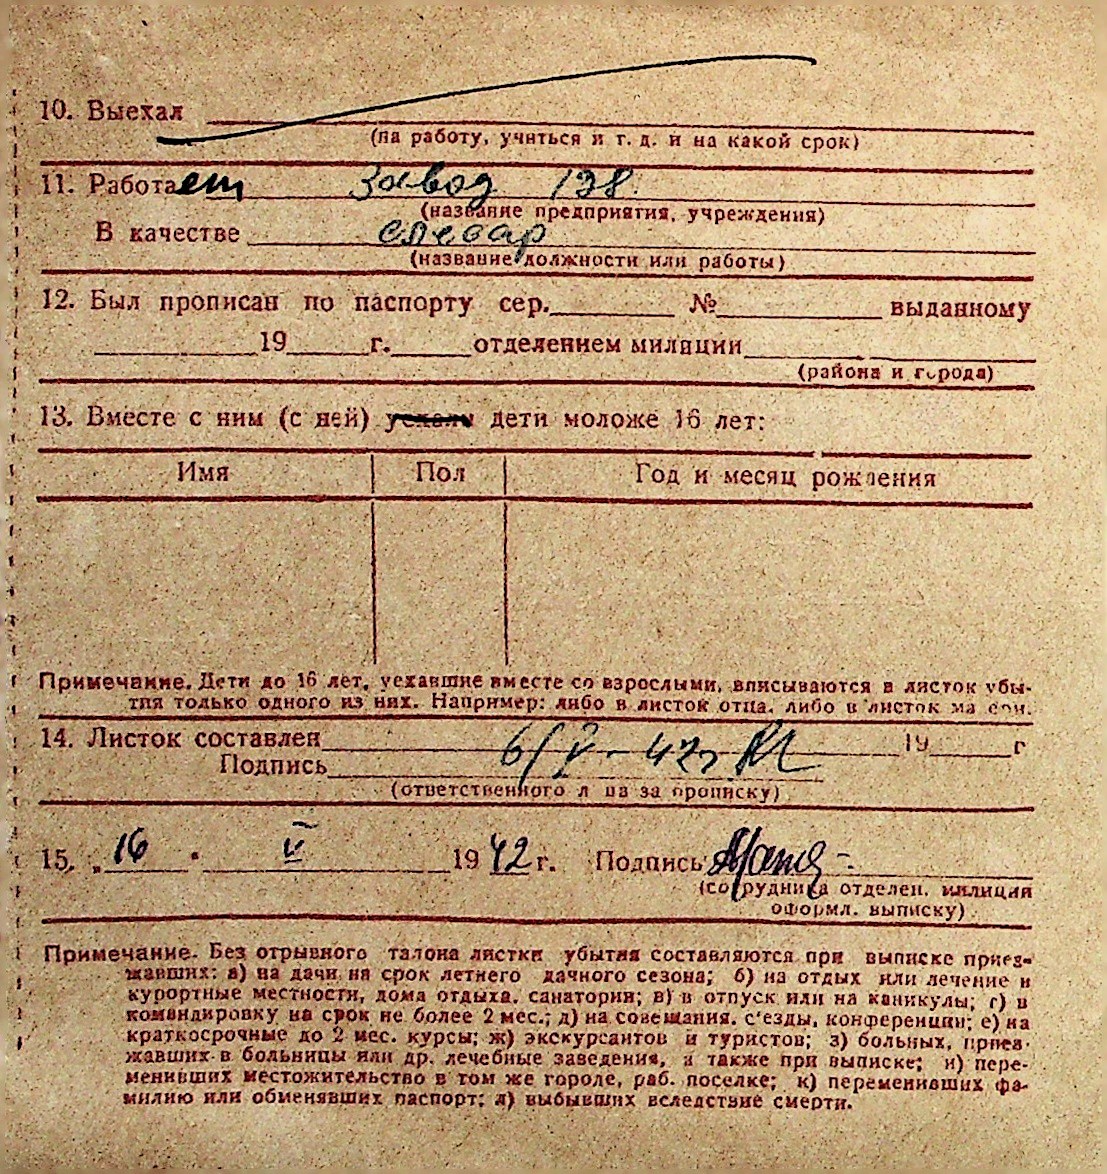 10. Выехал
(на работу, учиться и т. д. и на какой срок)
11. Работает завод 198.
(название предприятия, учреждения)
В качестве слесар
(название должности или работы)
12. Был прописан по паспорту сер. № выданному
19 г. отделением милиции
(района и города)
13. Вместе с ним (с ней) уехали дети моложе 16 лет:
Имя Пол Год и месяц рождения
Примечание. Дети до 16 лет, уехавшие вместе со взрослыми, вписываются в листок убы-
тия только одного из них. Например: либо в листок отца, либо в листок ма ери.
14. Листок составлен 6/V-42г 19 г
Подпись
(ответственного л ца за прописку)
15. „16 " V 1942 г. Подпись
(сотрудника отделен. милиции
оформл. выписку)
Примечание. Без отрывного талона листки убытия составляются при выписке приез-
жавших: а) на дачи на срок летнего дачного сезона; б) на отдых или лечение в
курортные местности, дома отдыха, санатории; в) в отпуск или на каникулы; г) в
командировку на срок не более 2 мес.; д) на совещания, с'езды, конференции; е) на
краткосрочные до 2 мес. курсы; ж) экскурсантов и туристов; з) больных, приез-
жавших в больницы или др. лечебные заведения, а также при выписке; и) пере-
менивших местожительство в том же городе, раб. поселке; к) переменивших фа-
милию или обменявших паспорт; л) выбывших вследствие смерти.